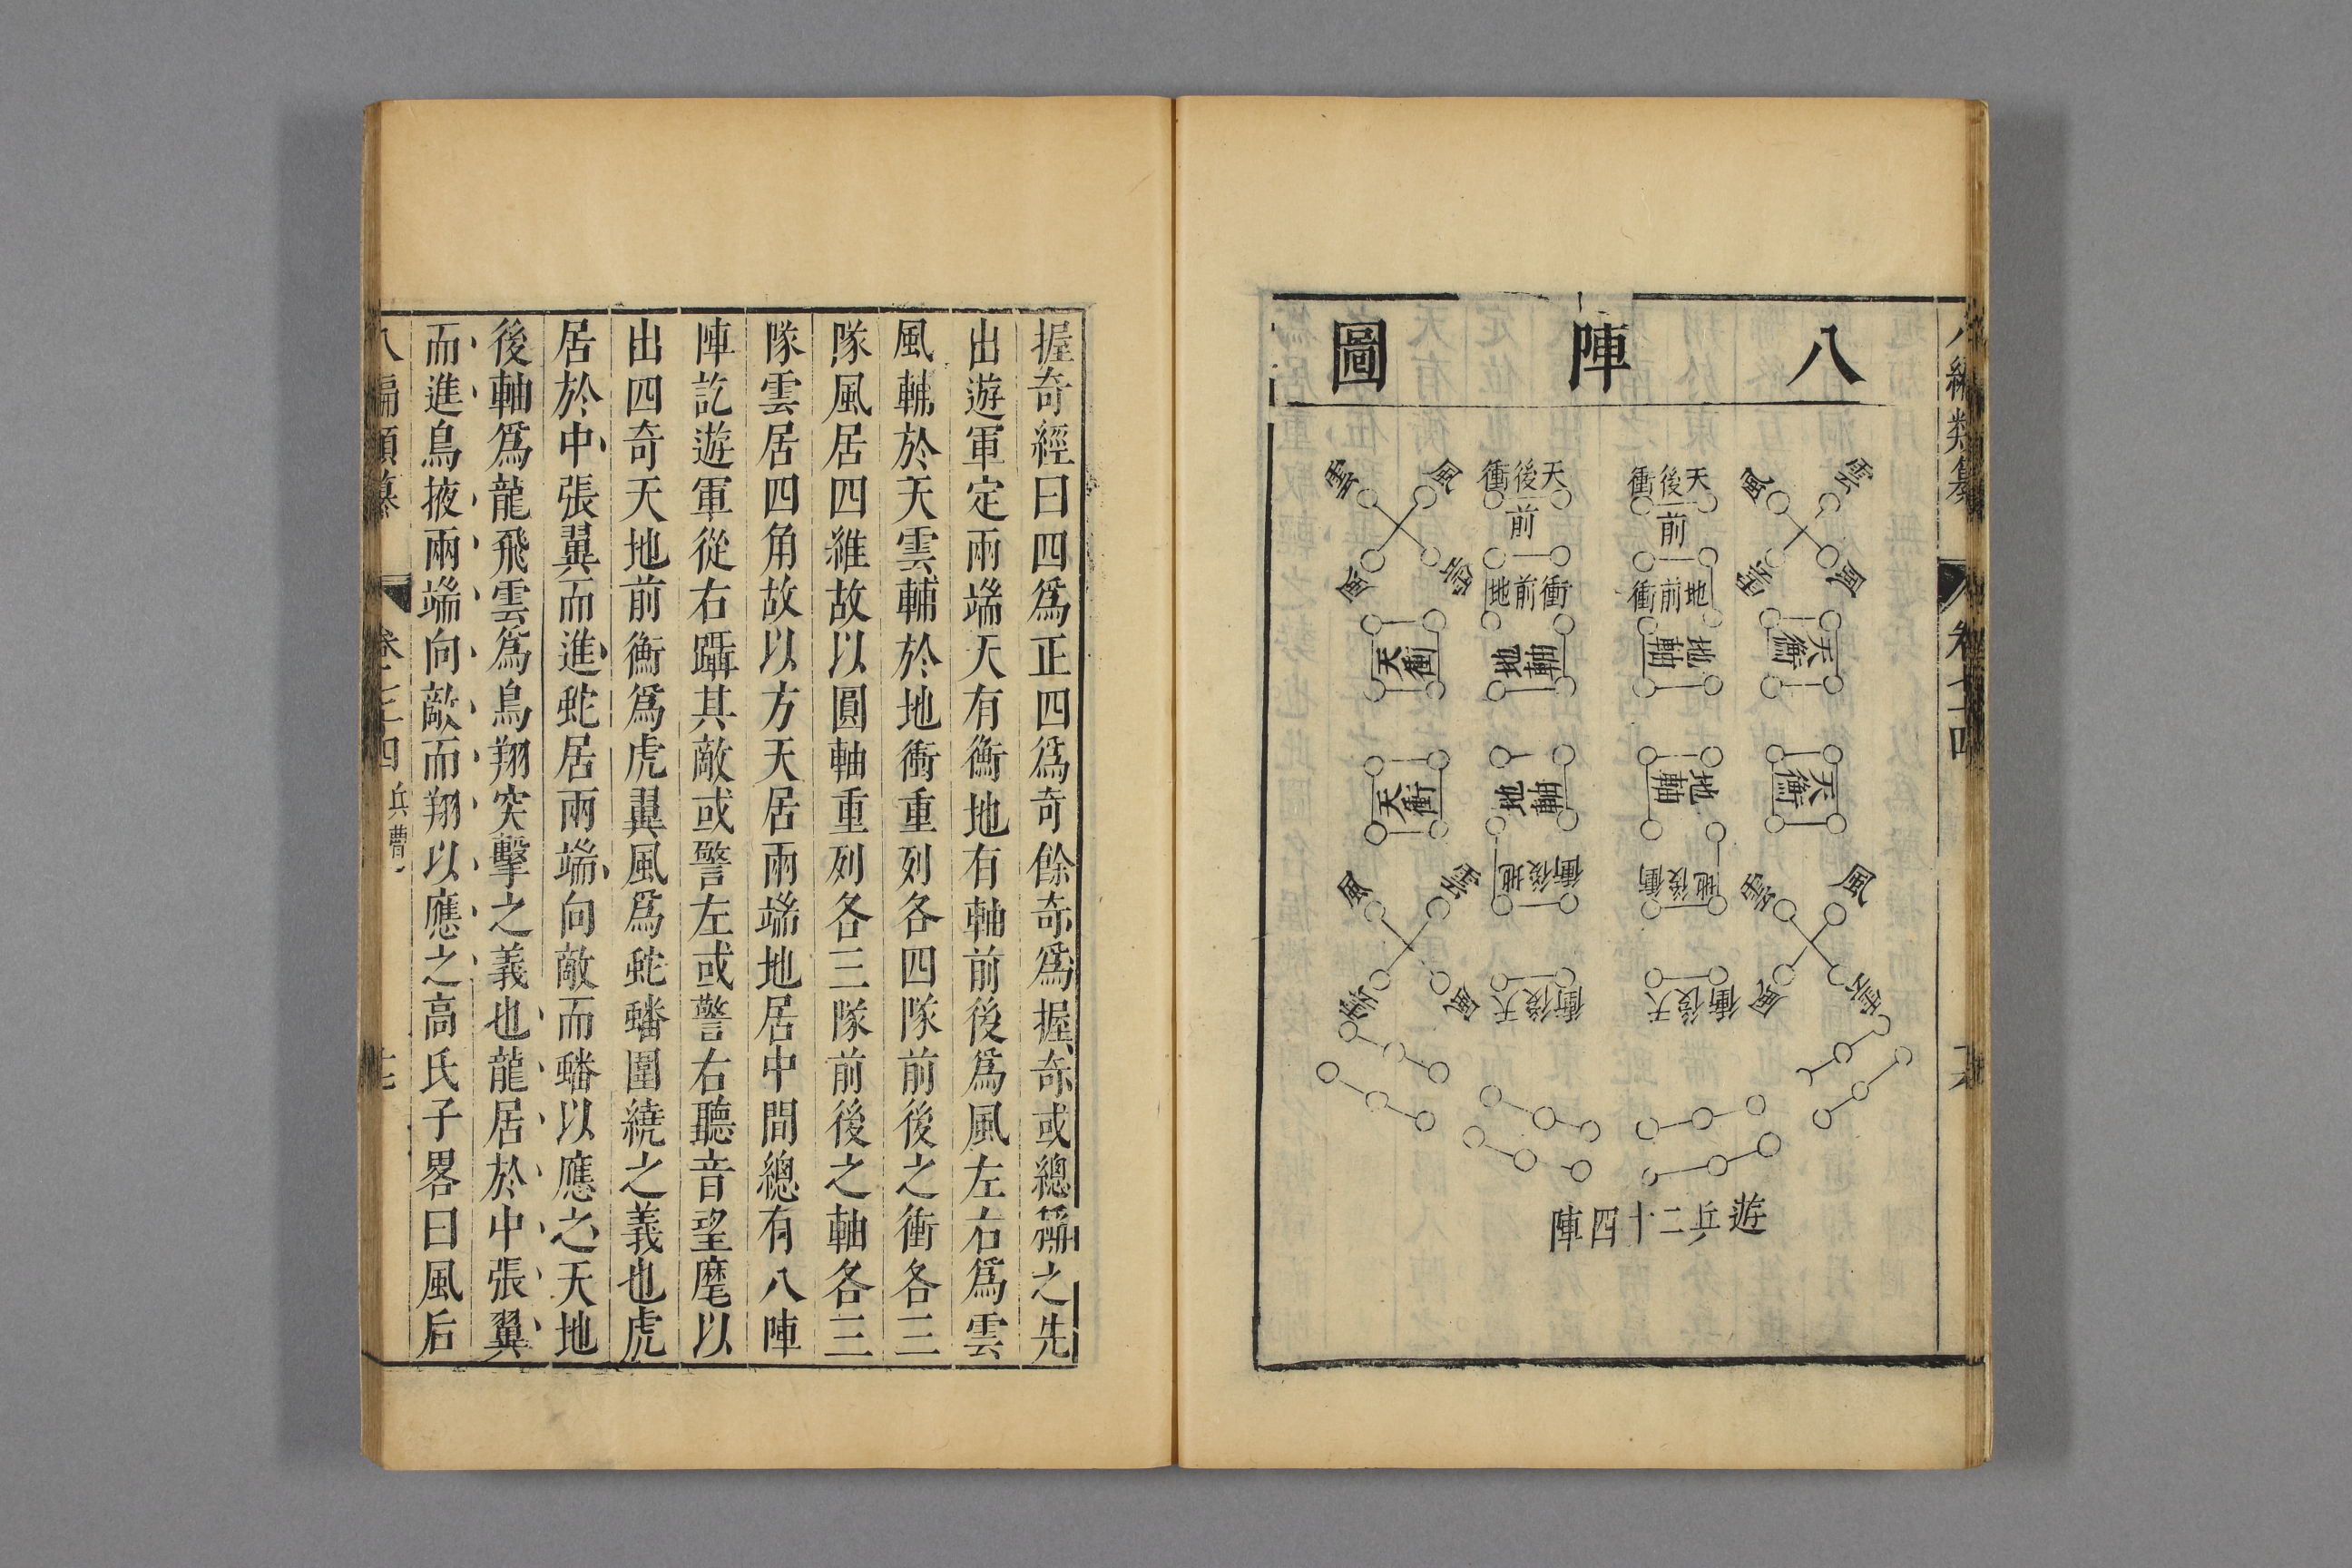 八編類纂
八陣圖
雲 風 天後衝 天後衝 風 雲
前 前
雲 風 地前衝 地前衝 雲 風
天衝 地軸 地軸 天衝
天衝 地軸 地軸 天衝
風 雲 地後衝 地後衝 雲 風
雲 風 天後衝 天後衝 風 雲
遊兵二十四陣
握奇經曰四爲正四爲奇餘奇爲握奇或總稱之先
出遊軍定兩端天有衝地有軸前後爲風左右爲雲
風輔於天雲輔於地衝重列各四隊前後之衝各三
隊風居四維故以圓軸重列各三隊前後之軸各三
隊雲居四角故以方天居兩端地居中間總有八陣
陣訖遊軍從右躡其敵或警左或警右聽音望麾以
出四奇天地前衝爲虎翼風爲蛇蟠圍繞之義也虎
居於中張翼而進蛇居兩端向敵而蟠以應之天地
後軸爲龍飛雲爲鳥翔突擊之義也龍居於中張翼
而進鳥掖兩端向敵而翔以應之高氏子畧曰風后
兵曹